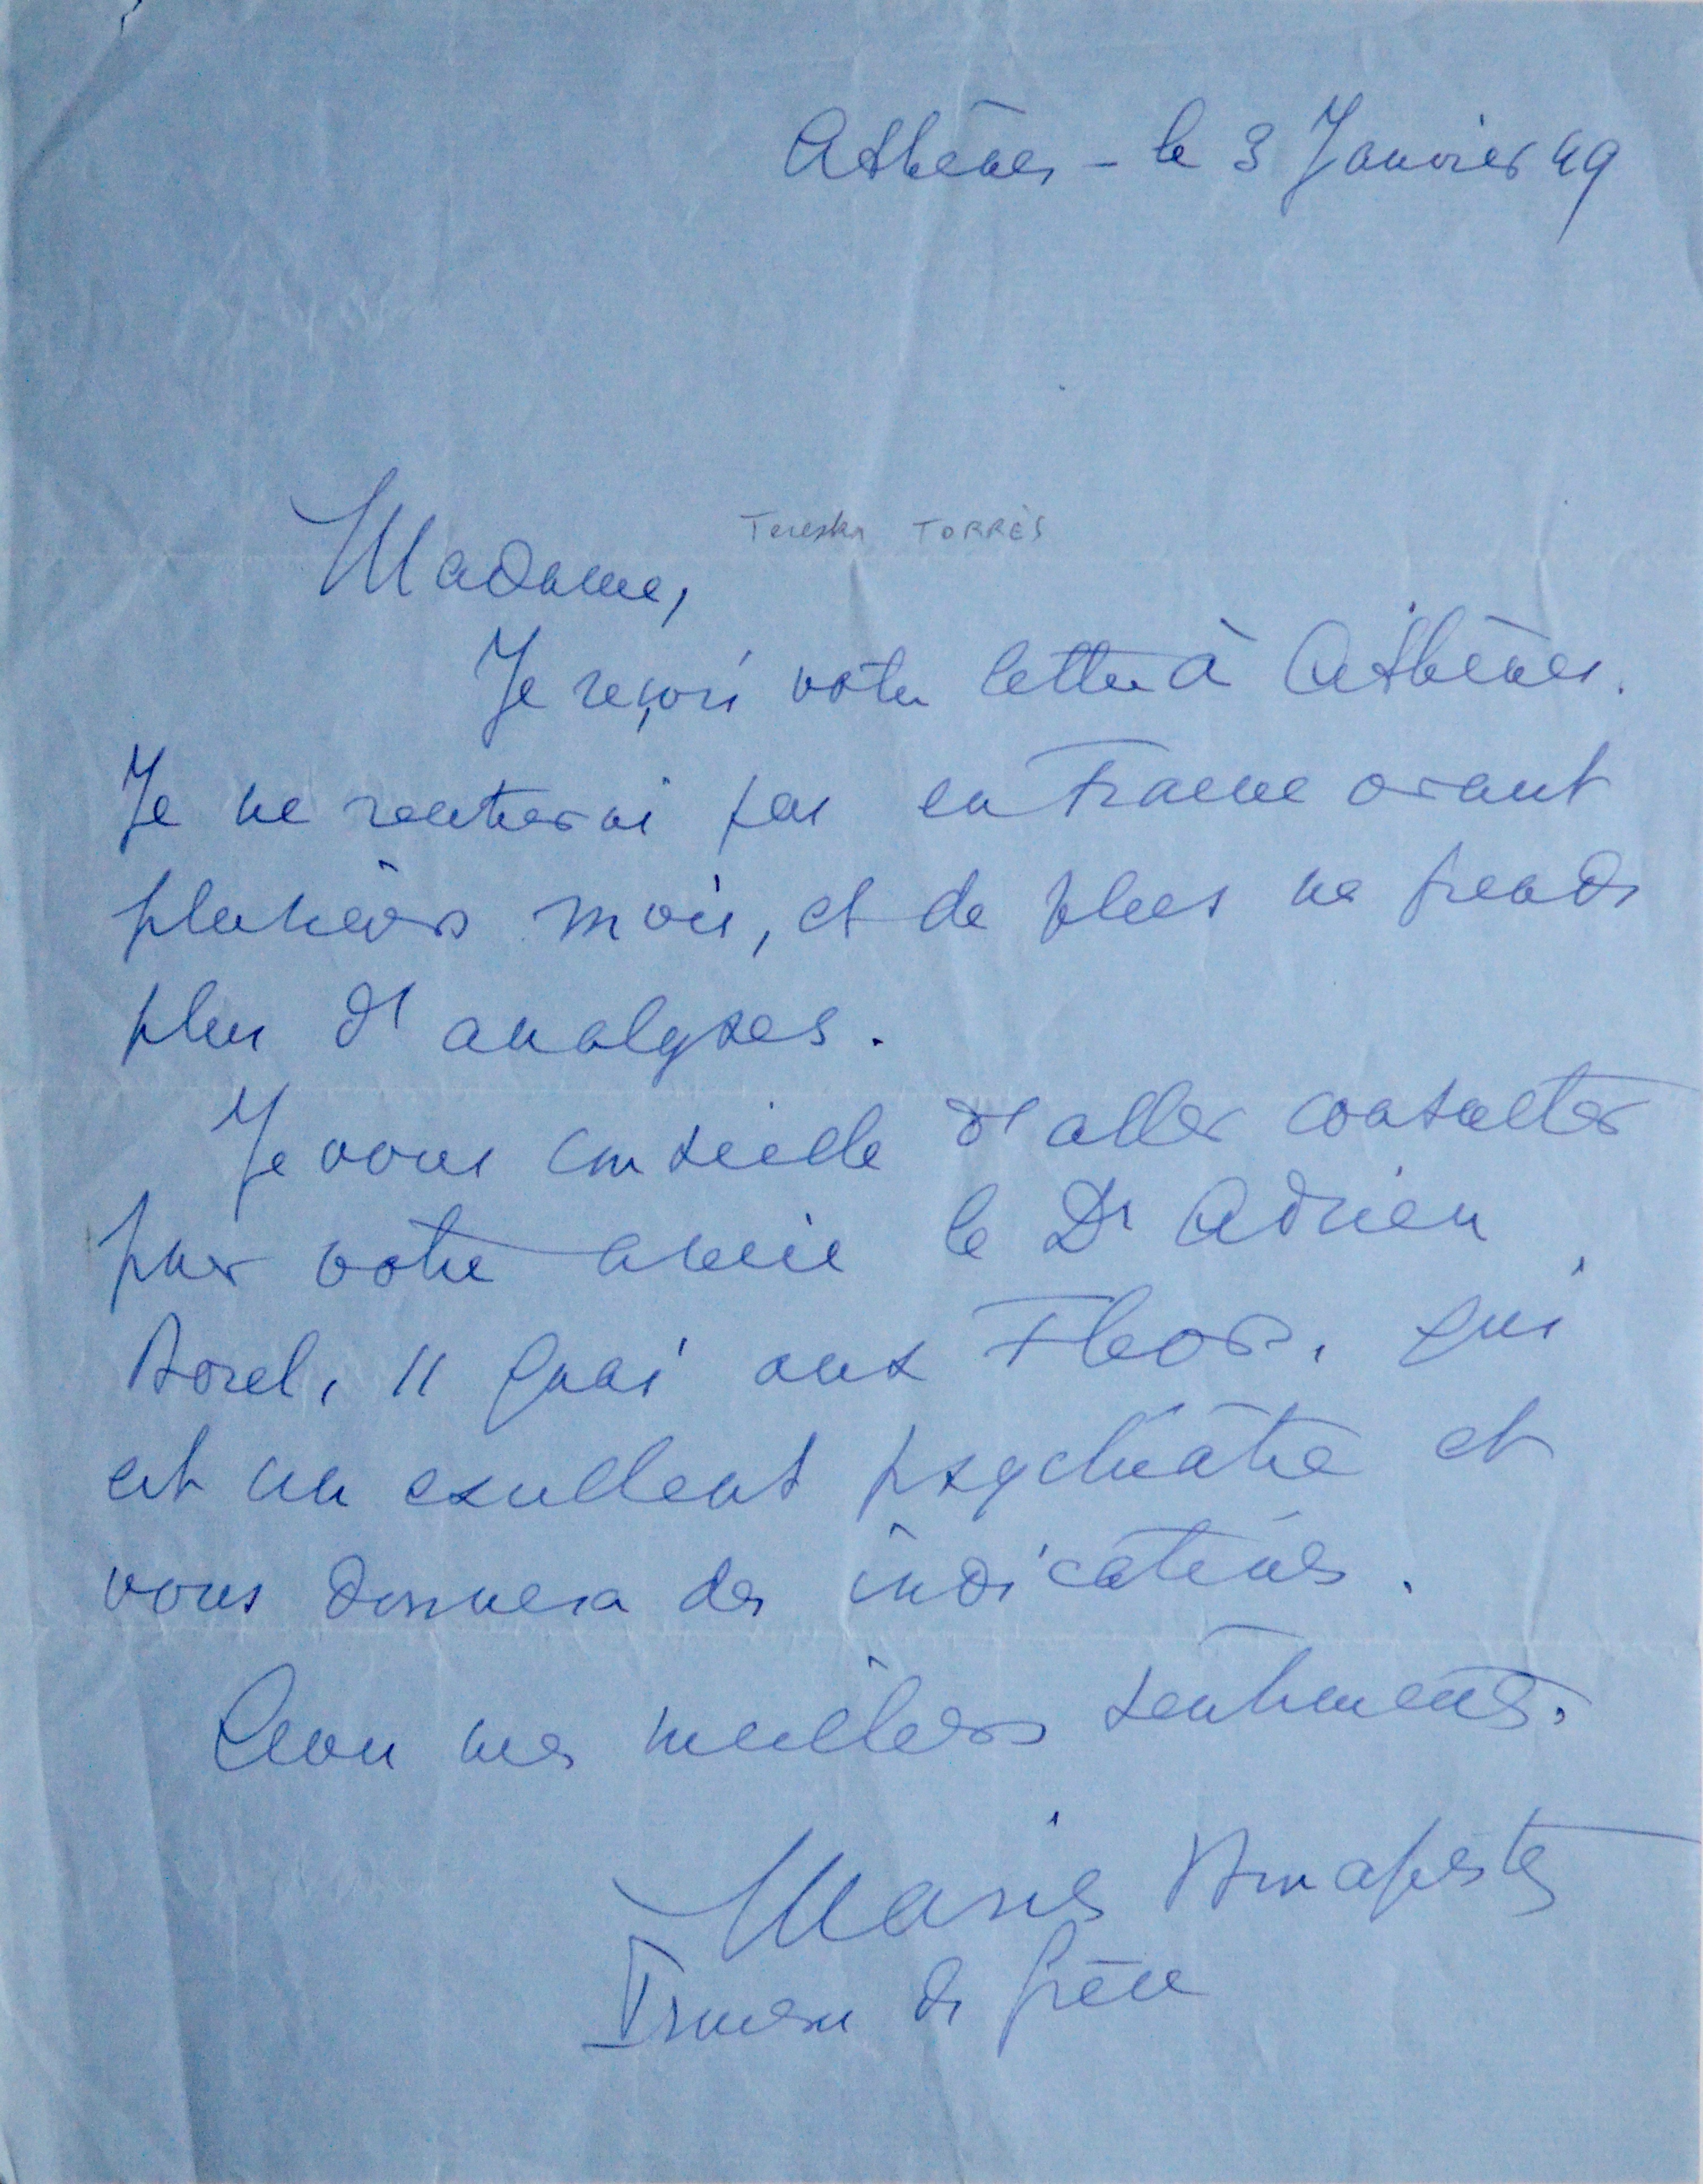 Athènes – le 3 Janvier 49
Tereska TORRÈS
Madame,
Je reçois votre lettre à Athènes.
Je ne rentrerai pas en France avant
plusieurs mois, et de plus ne prends
plus d'analyses.
Je vous conseille d'aller consulter
pour votre amie le Dr Adrien
Borel, 11 quai aux Fleurs, qui
est un excellent psychiatre et
vous donnera des indications.
Croyez mes meilleurs sentiments.
Marie Bonaparte
Princesse de Grèce